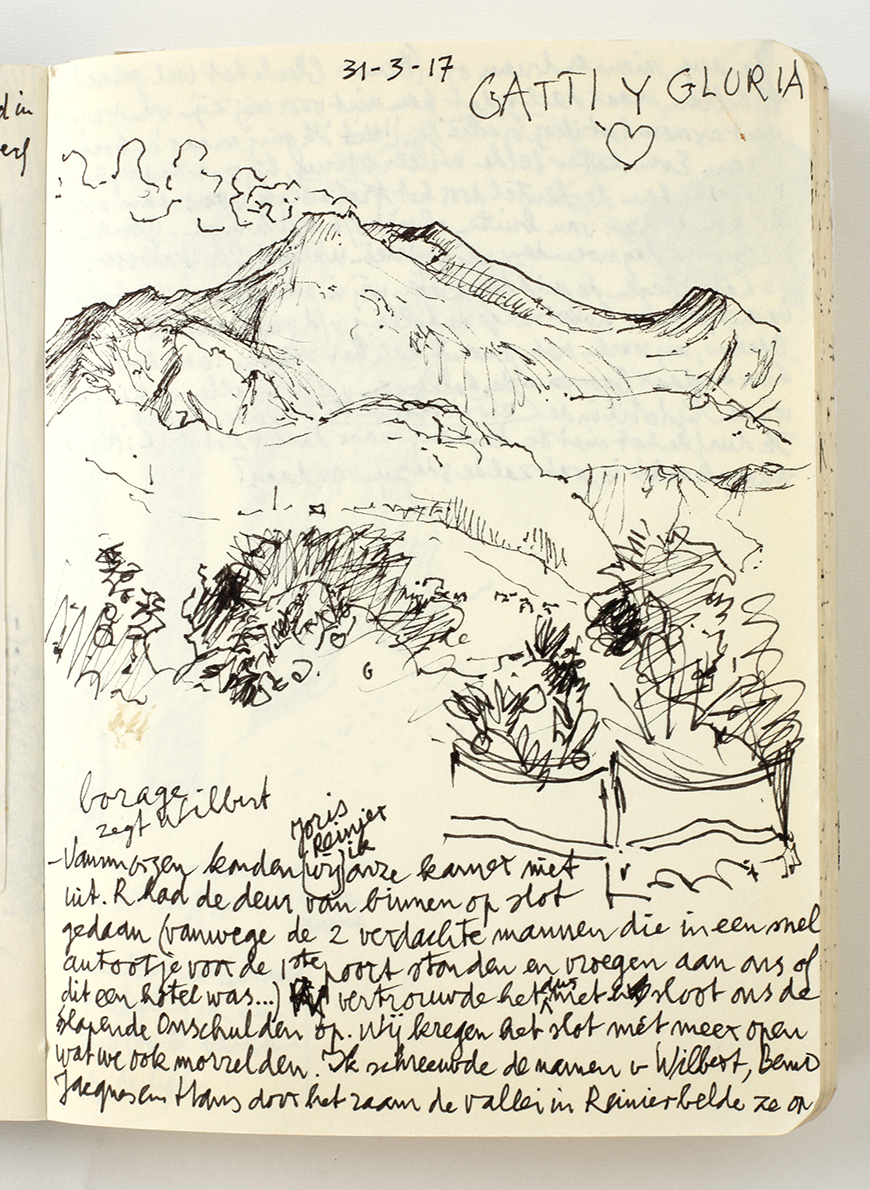 d in
31-3-17
GATTI Y GLORIA
borage
zegt Wilbert
Joris
Reinier
ik
- Vanmorgen konden (wij) onze kamer niet
uit. R had de deur van binnen op slot
gedaan (vanwege de 2 verdachte mannen die in een snel
autootje voor de 1ste poort stonden en vroegen aan ons of
dit een hotel was...) vertrouwde het dus niet en sloot ons de
slapende Onschulden op. Wij kregen het slot niet meer open
wat we ook morrelden. Ik schreeuwde de namen v Wilbert, Benno
Jacques en Hans door het raam de vallei in Reinier belde ze op